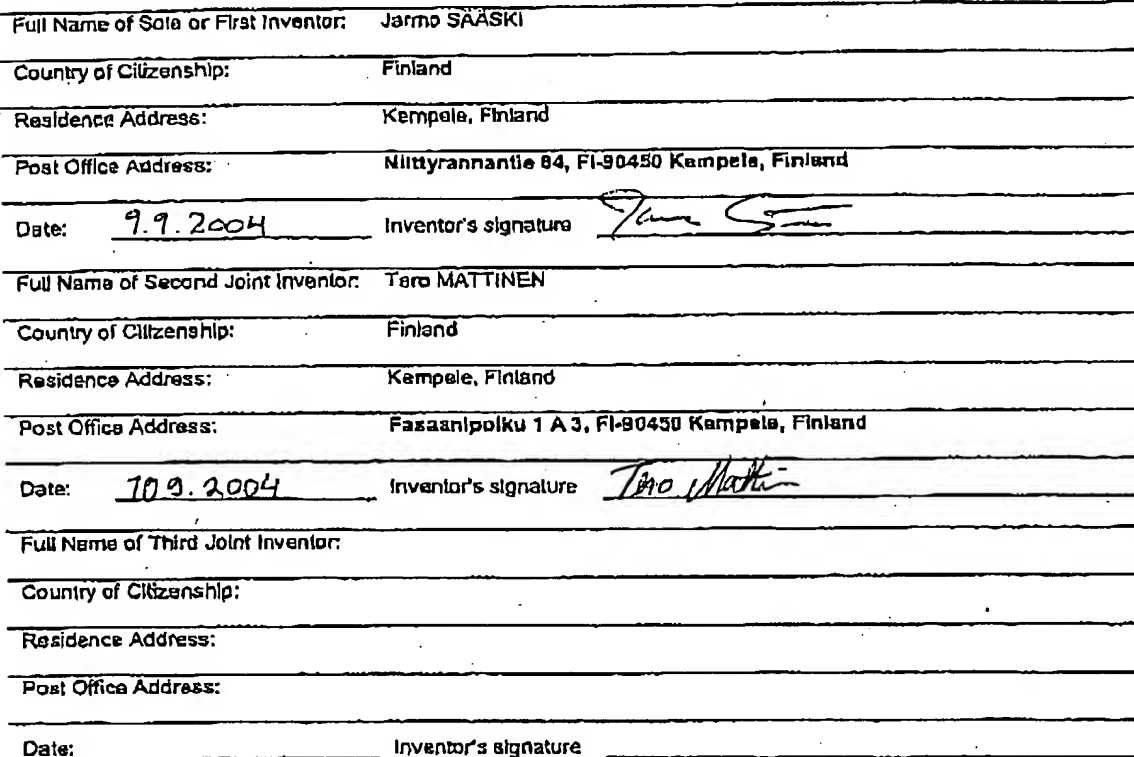 Full Name of Sole or First Inventor: Jarmo SÄÄSKI
Country of Citizenship: Finland
Residence Address: Kempele, Finland
Post Office Address: Niittyrannantie 84, FI-90450 Kempele, Finland
Date: 9.9.2004 Inventor's signature
Full Name of Second Joint Inventor: Tero MATTINEN
Country of Citizenship: Finland
Residence Address: Kempele, Finland
Post Office Address: Fasaanipolku 1 A 3, FI-90450 Kempele, Finland
Date: 10 9.2004 Inventor's signature Tero Mattin
Full Name of Third Joint Inventor:
Country of Citizenship:
Residence Address:
Post Office Address:
Date: Inventor's signature